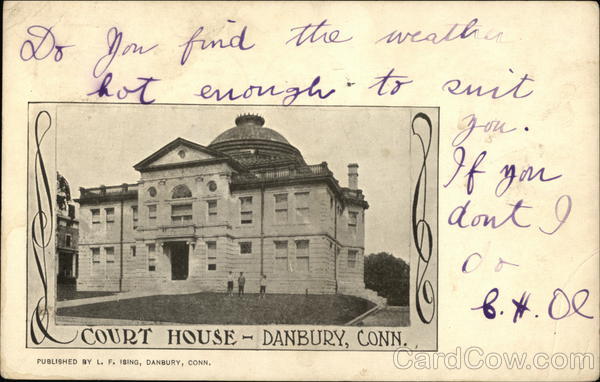 Do you find the weather
hot enough to suit
you.
If you
dont I
do
C. H. Ol
COURT HOUSE - DANBURY, CONN.
PUBLISHED BY L. F. ISING, DANBURY, CONN.
CardCow.com